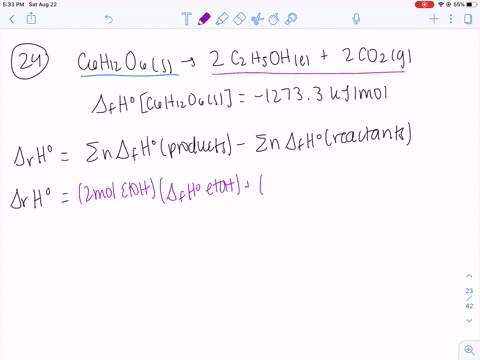 5:33 PM Sat Aug 22
55%
T
24 C6H12O6(s) → 2 C2H5OH(l) + 2 CO2(g)
ΔfH° [C6H12O6(s)] = -1273.3 kJ/mol
ΔrH° = ΣnΔfH°(products) - ΣnΔfH°(reactants)
ΔrH° = (2mol EtOH)(ΔfH° etOH) + (
23
/
42